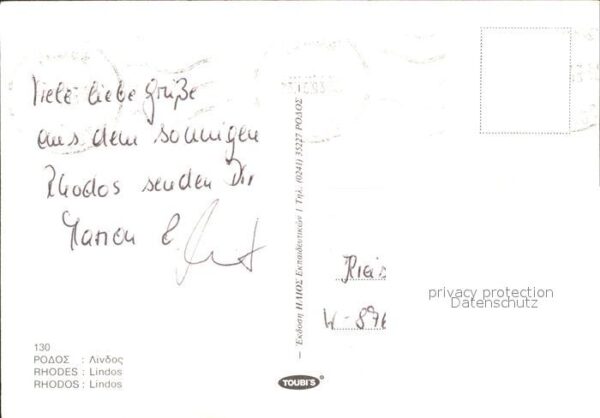 Viele liebe Grüße
aus dem sonnigen
Rhodos senden Dir
Marion &
130
ΡΟΔΟΣ : Λίνδος
RHODES : Lindos
RHODOS : Lindos
— Έκδοση ΗΛΙΟΣ Εκπαιδευτικών / Τηλ. (0241) 35227 ΡΟΔΟΣ
TOUBI'S
W-876
privacy protection
Datenschutz